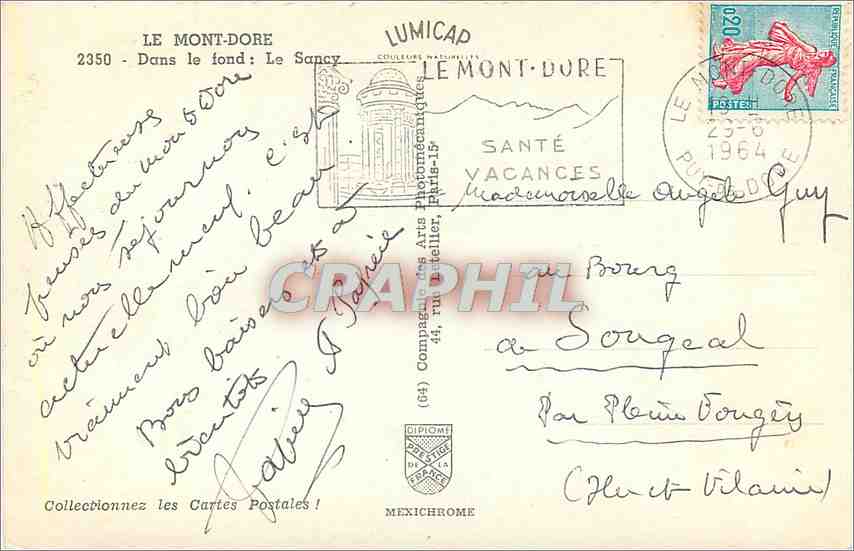 LE MONT-DORE
2350 - Dans le fond : Le Sancy
LUMICAP
COULEURS NATURELLES
LE MONT-DORE
SANTÉ
VACANCES
LE MONT DORE
25-6
1964
PUY DE DOME
0,20
REPUBLIQUE FRANÇAISE
POSTES
Affectueuses
pensées du mont Dore
où nous séjournons
actuellement. c'est
vraiment bien beau.
Bons baisers et à
bientôt
(64) Compagnie des Arts Photomécaniques
44, rue Letellier, Paris-15e
Mademoiselle Angèle Guy
au Bourg
de Sougeal
Par Pleine Fougères
(Ille et Vilaine)
CRAPHIL
DIPLOME
PRESTIGE
DE LA
FRANCE
MEXICHROME
Collectionnez les Cartes Postales !